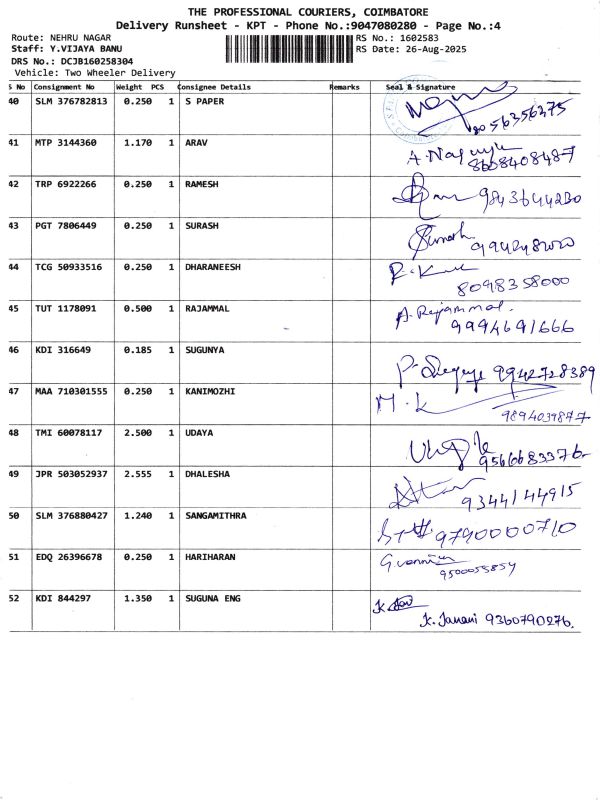 THE PROFESSIONAL COURIERS, COIMBATORE
Delivery Runsheet - KPT - Phone No.:9047080280 - Page No.:4
Route: NEHRU NAGAR
RS No.: 1602583
Staff: Y.VIJAYA BANU
RS Date: 26-Aug-2025
DRS No.: DCJB160258304
Vehicle: Two Wheeler Delivery
S No Consignment No Weight PCS Consignee Details Remarks Seal & Signature
40 SLM 376782813 0.250 1 S PAPER
8056356275
41 MTP 3144360 1.170 1 ARAV
8608408487
42 TRP 6922266 0.250 1 RAMESH 9843644230
43 PGT 7806449 0.250 1 SURASH
44 TCG 50933516 0.250 1 DHARANEESH
8098358000
45 TUT 1178091 0.500 1 RAJAMMAL A. Rajammal.
9994691666
46 KDI 316649 0.185 1 SUGUNYA
9942728389
47 MAA 710301555 0.250 1 KANIMOZHI M.K
9894039877
48 TMI 60078117 2.500 1 UDAYA
9566683376
49 JPR 503052937 2.555 1 DHALESHA
9344144915
50 SLM 376880427 1.240 1 SANGAMITHRA 9790000710
51 EDQ 26396678 0.250 1 HARIHARAN
9500055854
52 KDI 844297 1.350 1 SUGUNA ENG
K. Janani 9360790276.